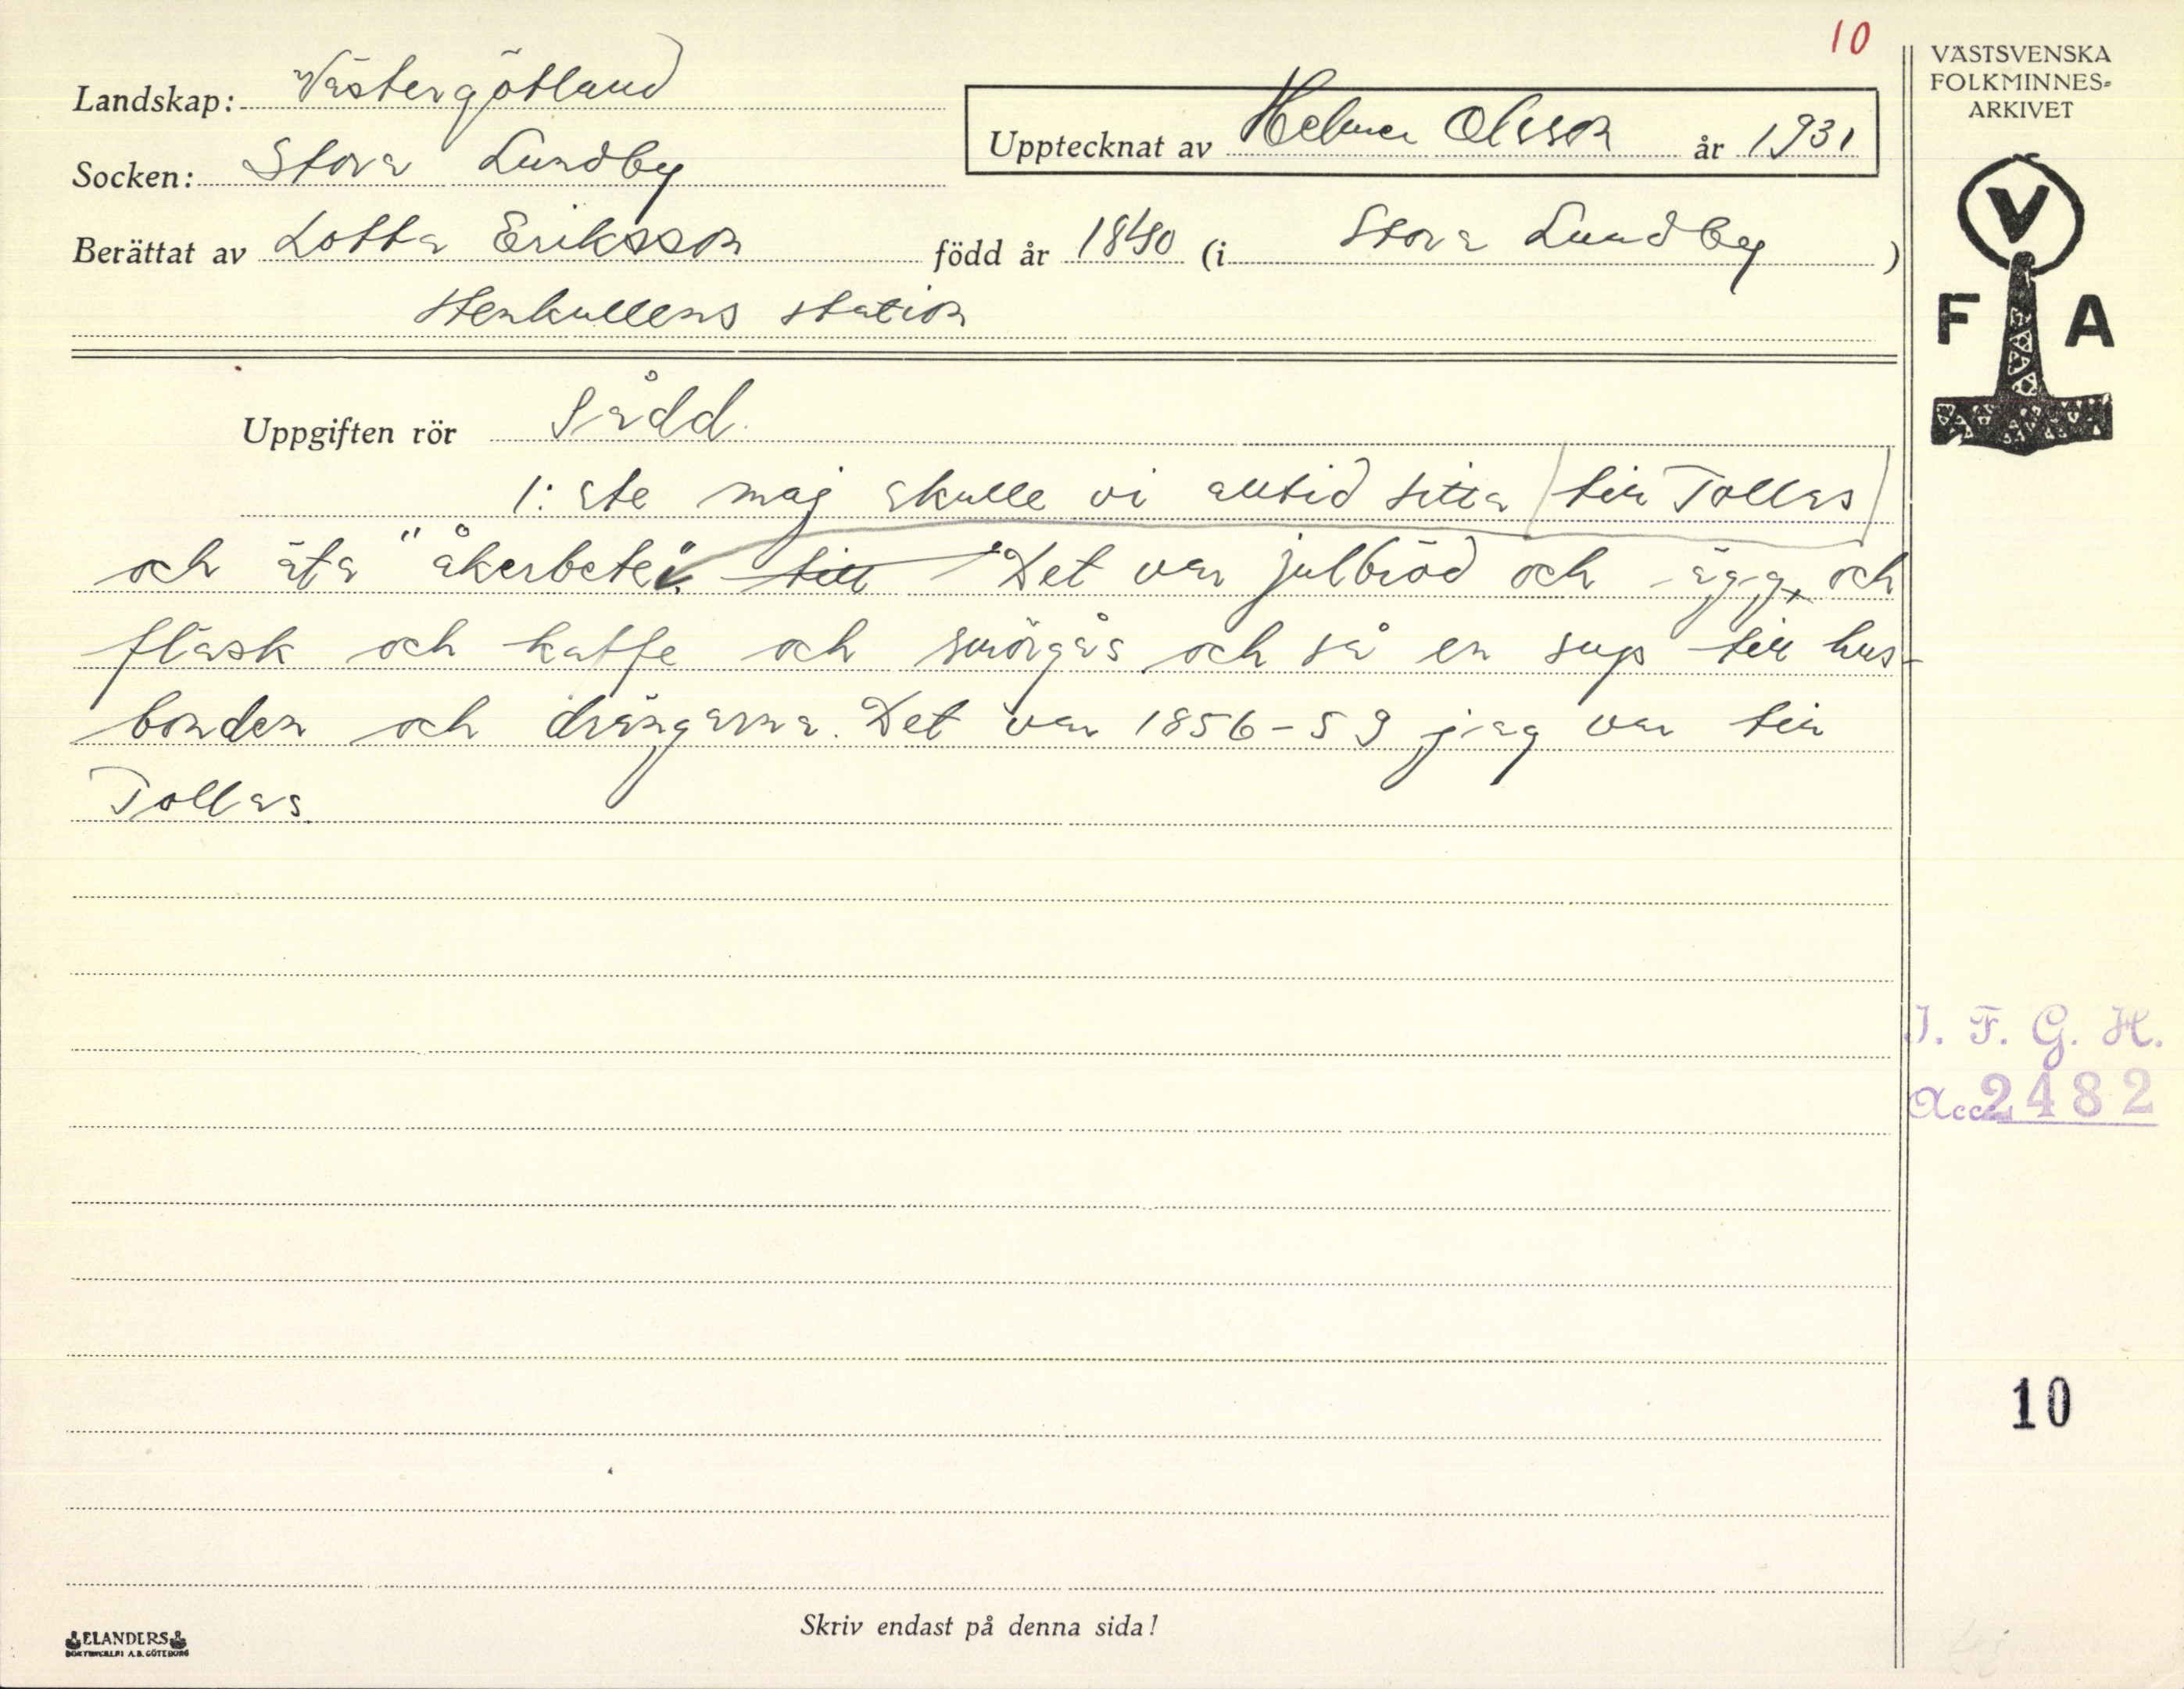 10
Landskap: Västergötland
Socken: Stora Lundby
Upptecknat av Helmer Olsson år 1931
Berättat av Lotta Eriksson född år 1840 (i Stora Lundby)
Stenkullens station
VÄSTSVENSKA
FOLKMINNES-
ARKIVET
V
F A
Uppgiften rör Sådd.
1:ste maj skulle vi alltid sitta (till Tollas)
och äta "åkerbete". till Det var julbröd och ägg, och
fläsk och kaffe och smörgås och så en sup till hus-
bonden och drängarna. Det var 1856-59 jag var till
Tollas.
I. F. G. H.
Acc. 2482
10
Skriv endast på denna sida!
ELANDERS
BOKTRYCKERI A.B. GÖTEBORG